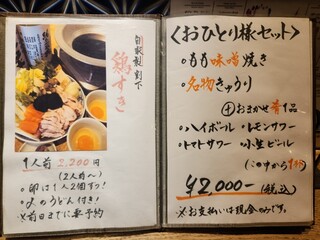 自家製 割下
鶏すき
1人前 2,200円
(2人前〜)
○卵は1人2個ずつ!
○〆のうどん付き!
※前日までに要予約
〈おひとり様セット〉
○もも味噌焼き
○名物きゅうり
⊕おまかせ肴1品
○ハイボール ○レモンサワー
○トマトサワー ○小生ビール
(この中から1杯)
¥2,000-(税込)
※お支払いは現金のみです。